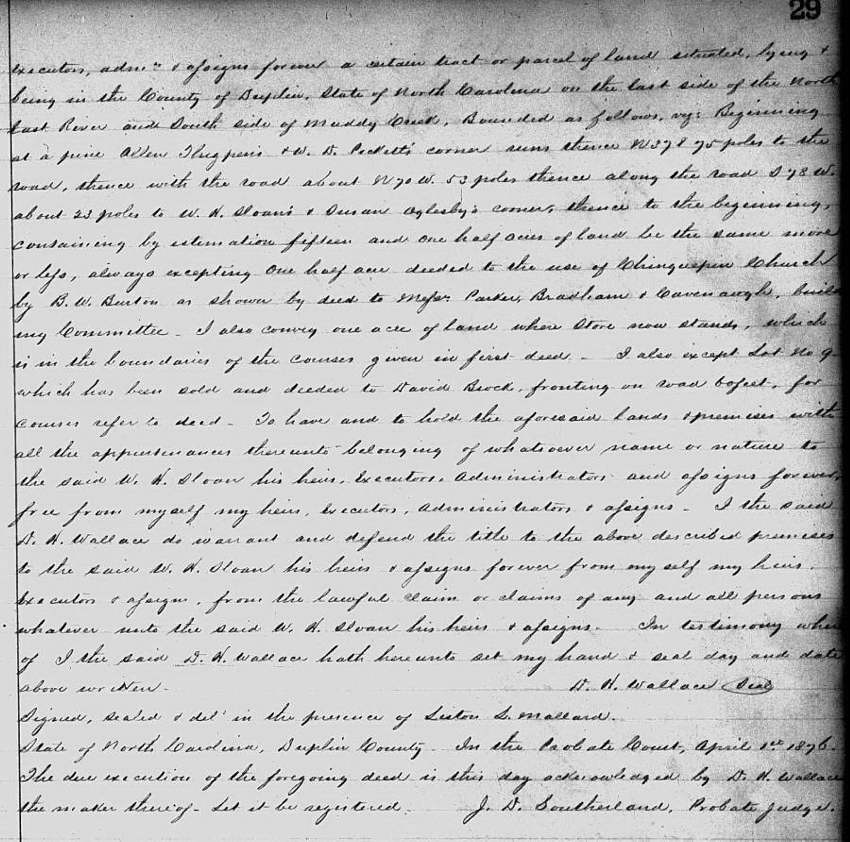 29
executors, admrs & assigns forever a certain tract or parcel of land situated, lying &
being in the County of Duplin, State of North Carolina on the East side of the North
East River and South side of Muddy Creek, Bounded as follows, viz: Beginning
at a pine Allen Thigpen's & W. D. Pickett's corner runs thence N 37 E 75 poles to the
road, thence with the road about N 70 W. 53 poles thence along the road S 78 W.
about 23 poles to W. H. Sloan's & Susan Oglesby's corner, thence to the beginning,
containing by estimation fifteen and one half acres of land be the same more
or less, always excepting One half acre deeded to the use of Chinquepin Church
by B. W. Burton as shown by deed to Messrs Parker, Bradham & Cavenaugh, build
ing Committee - I also convey one acre of land where Store now stands, which
is in the boundaries of the courses given in first deed. - I also except Lot No 9
which has been sold and deeded to David Brock, fronting on road feet, for
courses refer to deed - To have and to hold the aforesaid lands & premises with
all the appurtenances thereunto belonging of whatsoever name or nature to
the said W. H. Sloan his heirs, Executors, Administrators and assigns forever,
free from myself my heirs, Executors, Administrators & assigns - I the said
D. H. Wallace do warrant and defend the title to the above described premises
to the said W. H. Sloan his heirs & assigns forever from myself my heirs,
Executors & assigns, from the lawful claim or claims of any and all persons
whatever unto the said W. H. Sloan his heirs & assigns. In testimony where
of I the said D. H. Wallace hath hereunto set my hand & seal day and date
above written. D. H. Wallace Seal
Signed, sealed & deld in the presence of Liston L. Mallard.
State of North Carolina, Duplin County In the Probate Court, April 1st 1876.
The due execution of the foregoing deed is this day acknowledged by D. H. Wallace
the maker thereof - Let it be registered. J. D. Southerland, Probate Judge.